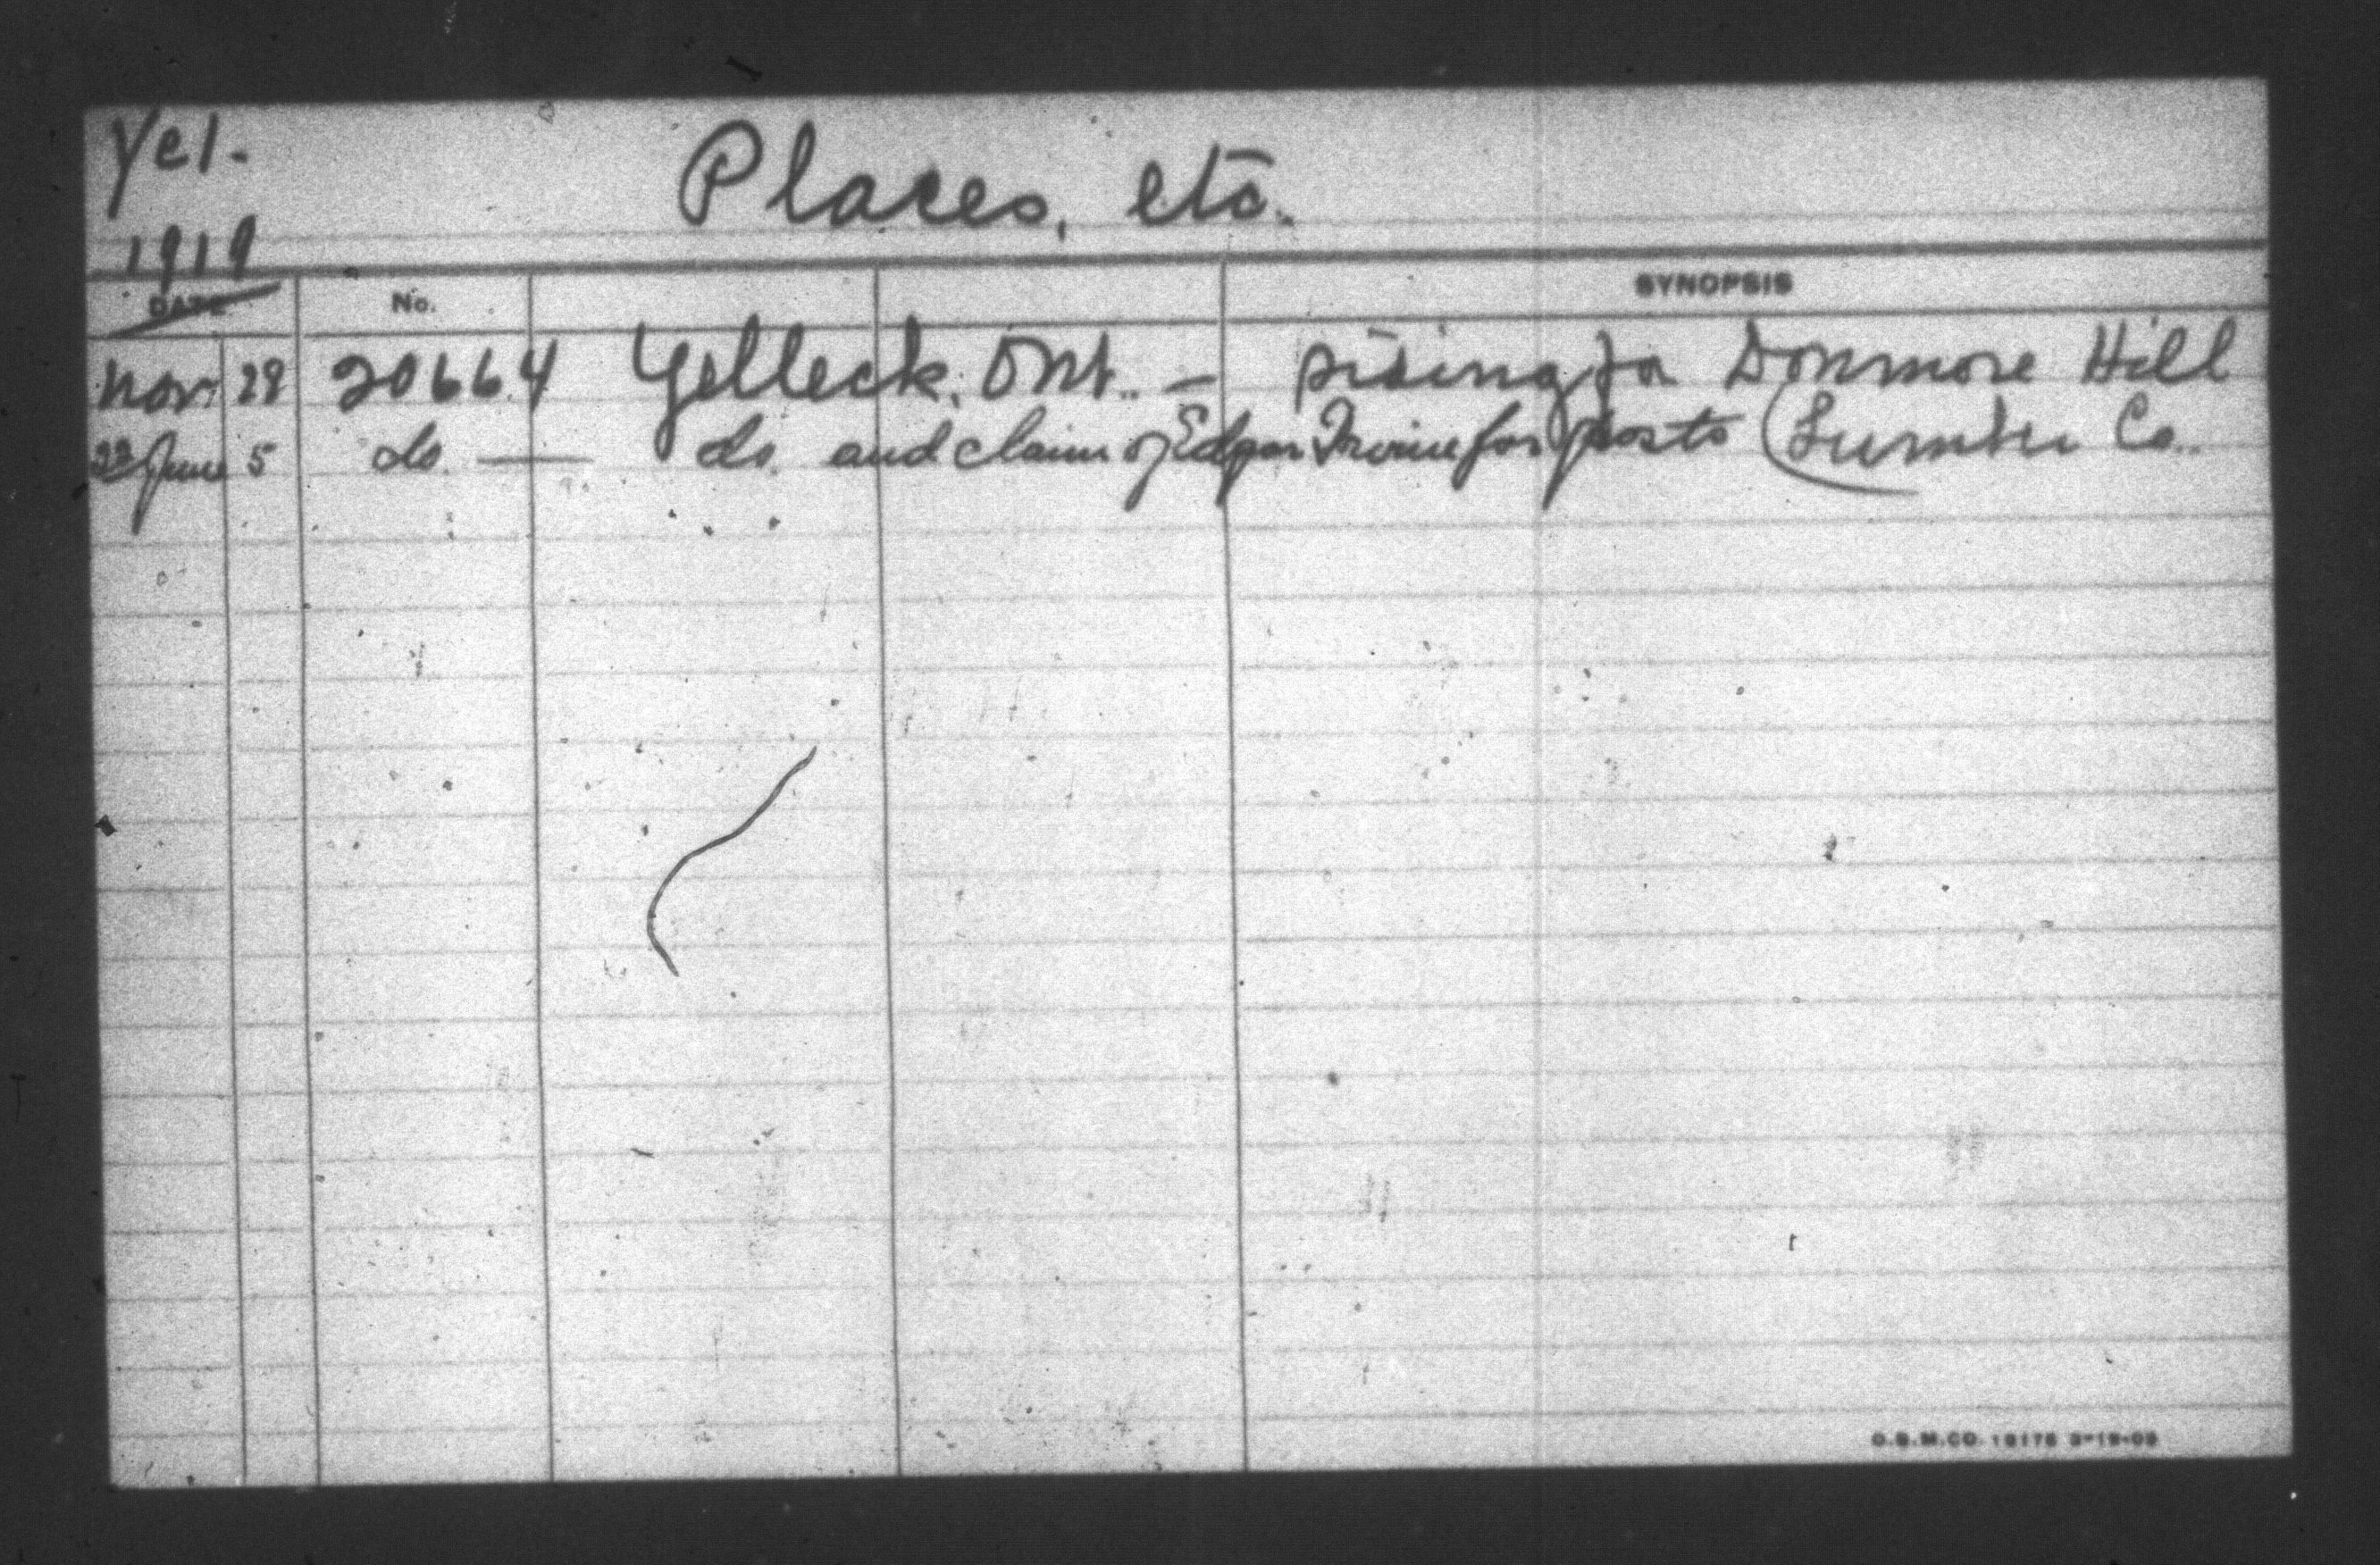 Yel.
Places, etc.
1919
DATE No. SYNOPSIS
Nov. 28 20664 Yelleck, Ont. — siding for Donmore Hill
22 June 5 do. — do. and claim of Edgar Irvine for posts (Lumber Co.
O.S.M.CO. 19176 3-19-09